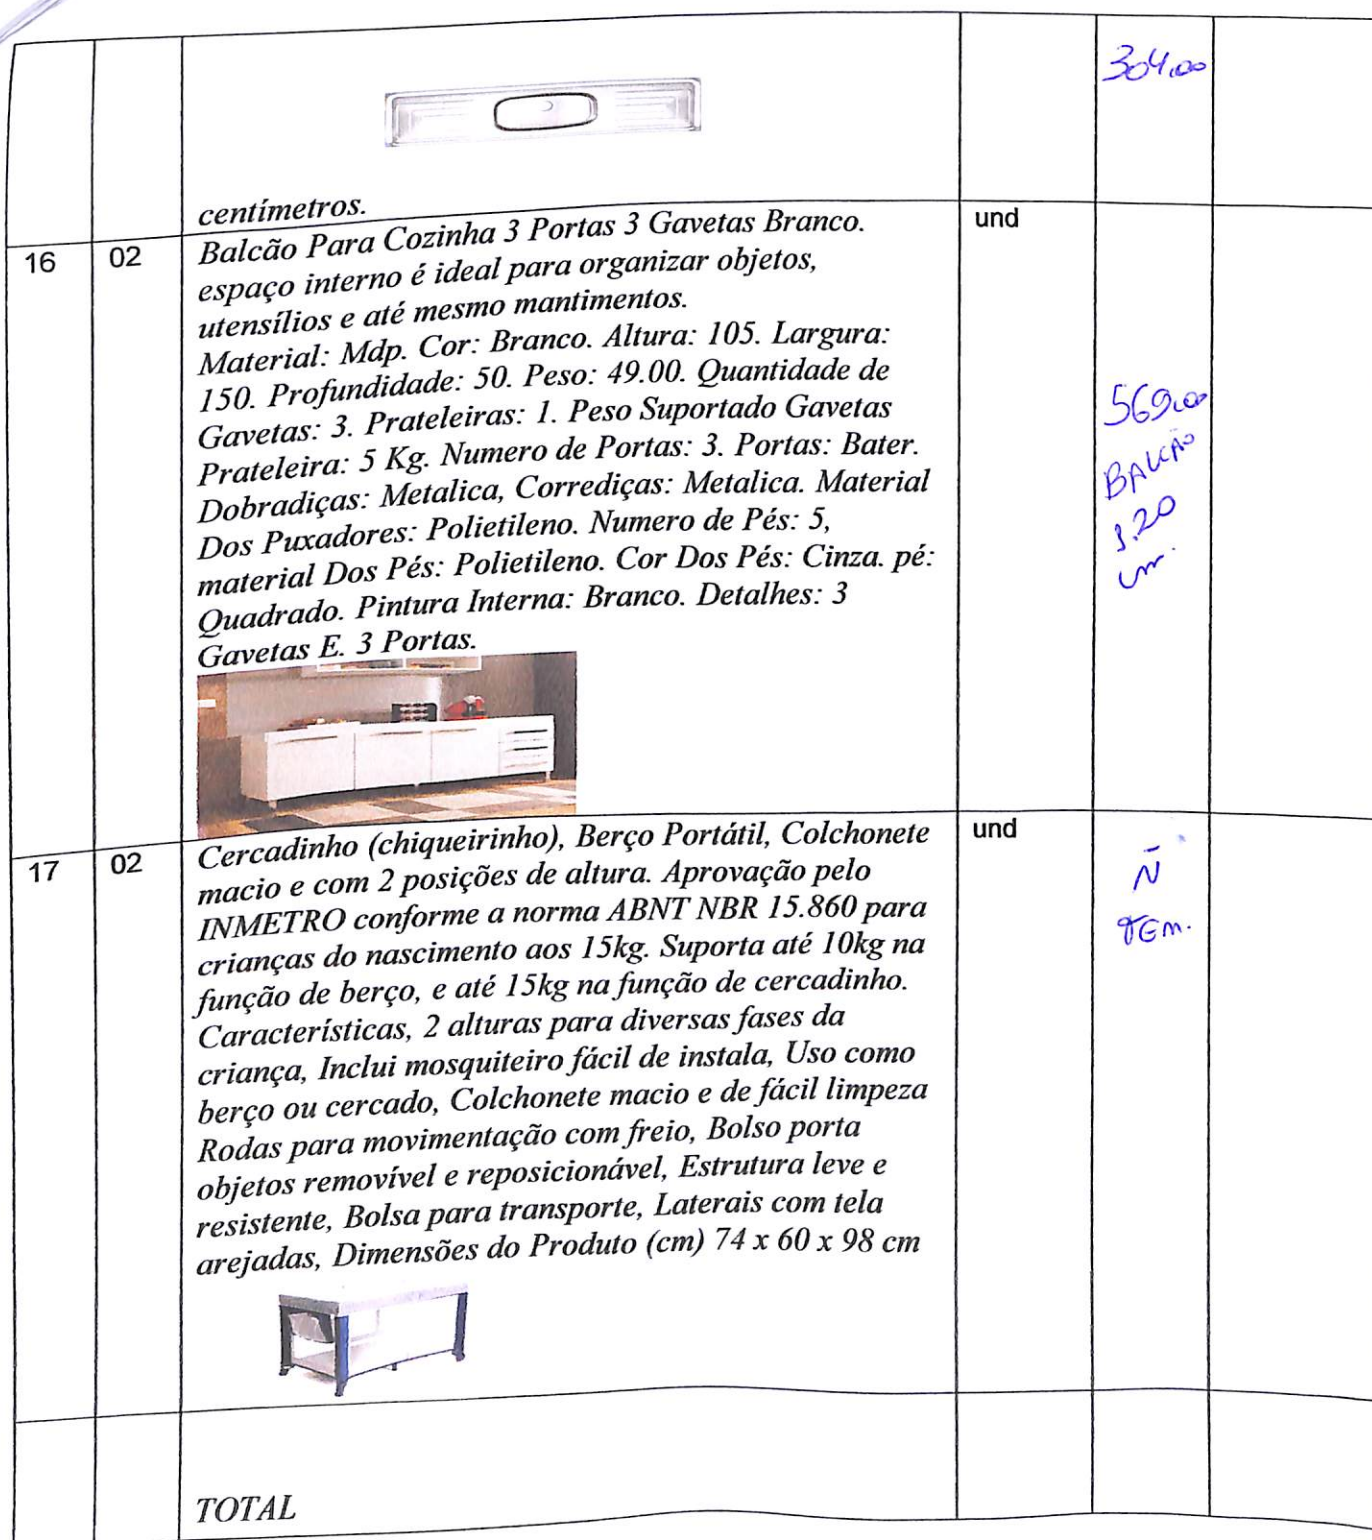 304,00
centímetros.
16 02 Balcão Para Cozinha 3 Portas 3 Gavetas Branco. und
espaço interno é ideal para organizar objetos,
utensílios e até mesmo mantimentos.
Material: Mdp. Cor: Branco. Altura: 105. Largura:
150. Profundidade: 50. Peso: 49.00. Quantidade de
Gavetas: 3. Prateleiras: 1. Peso Suportado Gavetas
Prateleira: 5 Kg. Numero de Portas: 3. Portas: Bater.
Dobradiças: Metalica, Corrediças: Metalica. Material
Dos Puxadores: Polietileno. Numero de Pés: 5,
material Dos Pés: Polietileno. Cor Dos Pés: Cinza. pé:
Quadrado. Pintura Interna: Branco. Detalhes: 3
Gavetas E. 3 Portas.
569,00
BALCÃO
1.20
cm.
17 02 Cercadinho (chiqueirinho), Berço Portátil, Colchonete und
macio e com 2 posições de altura. Aprovação pelo
INMETRO conforme a norma ABNT NBR 15.860 para
crianças do nascimento aos 15kg. Suporta até 10kg na
função de berço, e até 15kg na função de cercadinho.
Características, 2 alturas para diversas fases da
criança, Inclui mosquiteiro fácil de instala, Uso como
berço ou cercado, Colchonete macio e de fácil limpeza
Rodas para movimentação com freio, Bolso porta
objetos removível e reposicionável, Estrutura leve e
resistente, Bolsa para transporte, Laterais com tela
arejadas, Dimensões do Produto (cm) 74 x 60 x 98 cm
Ñ
TEM.
TOTAL